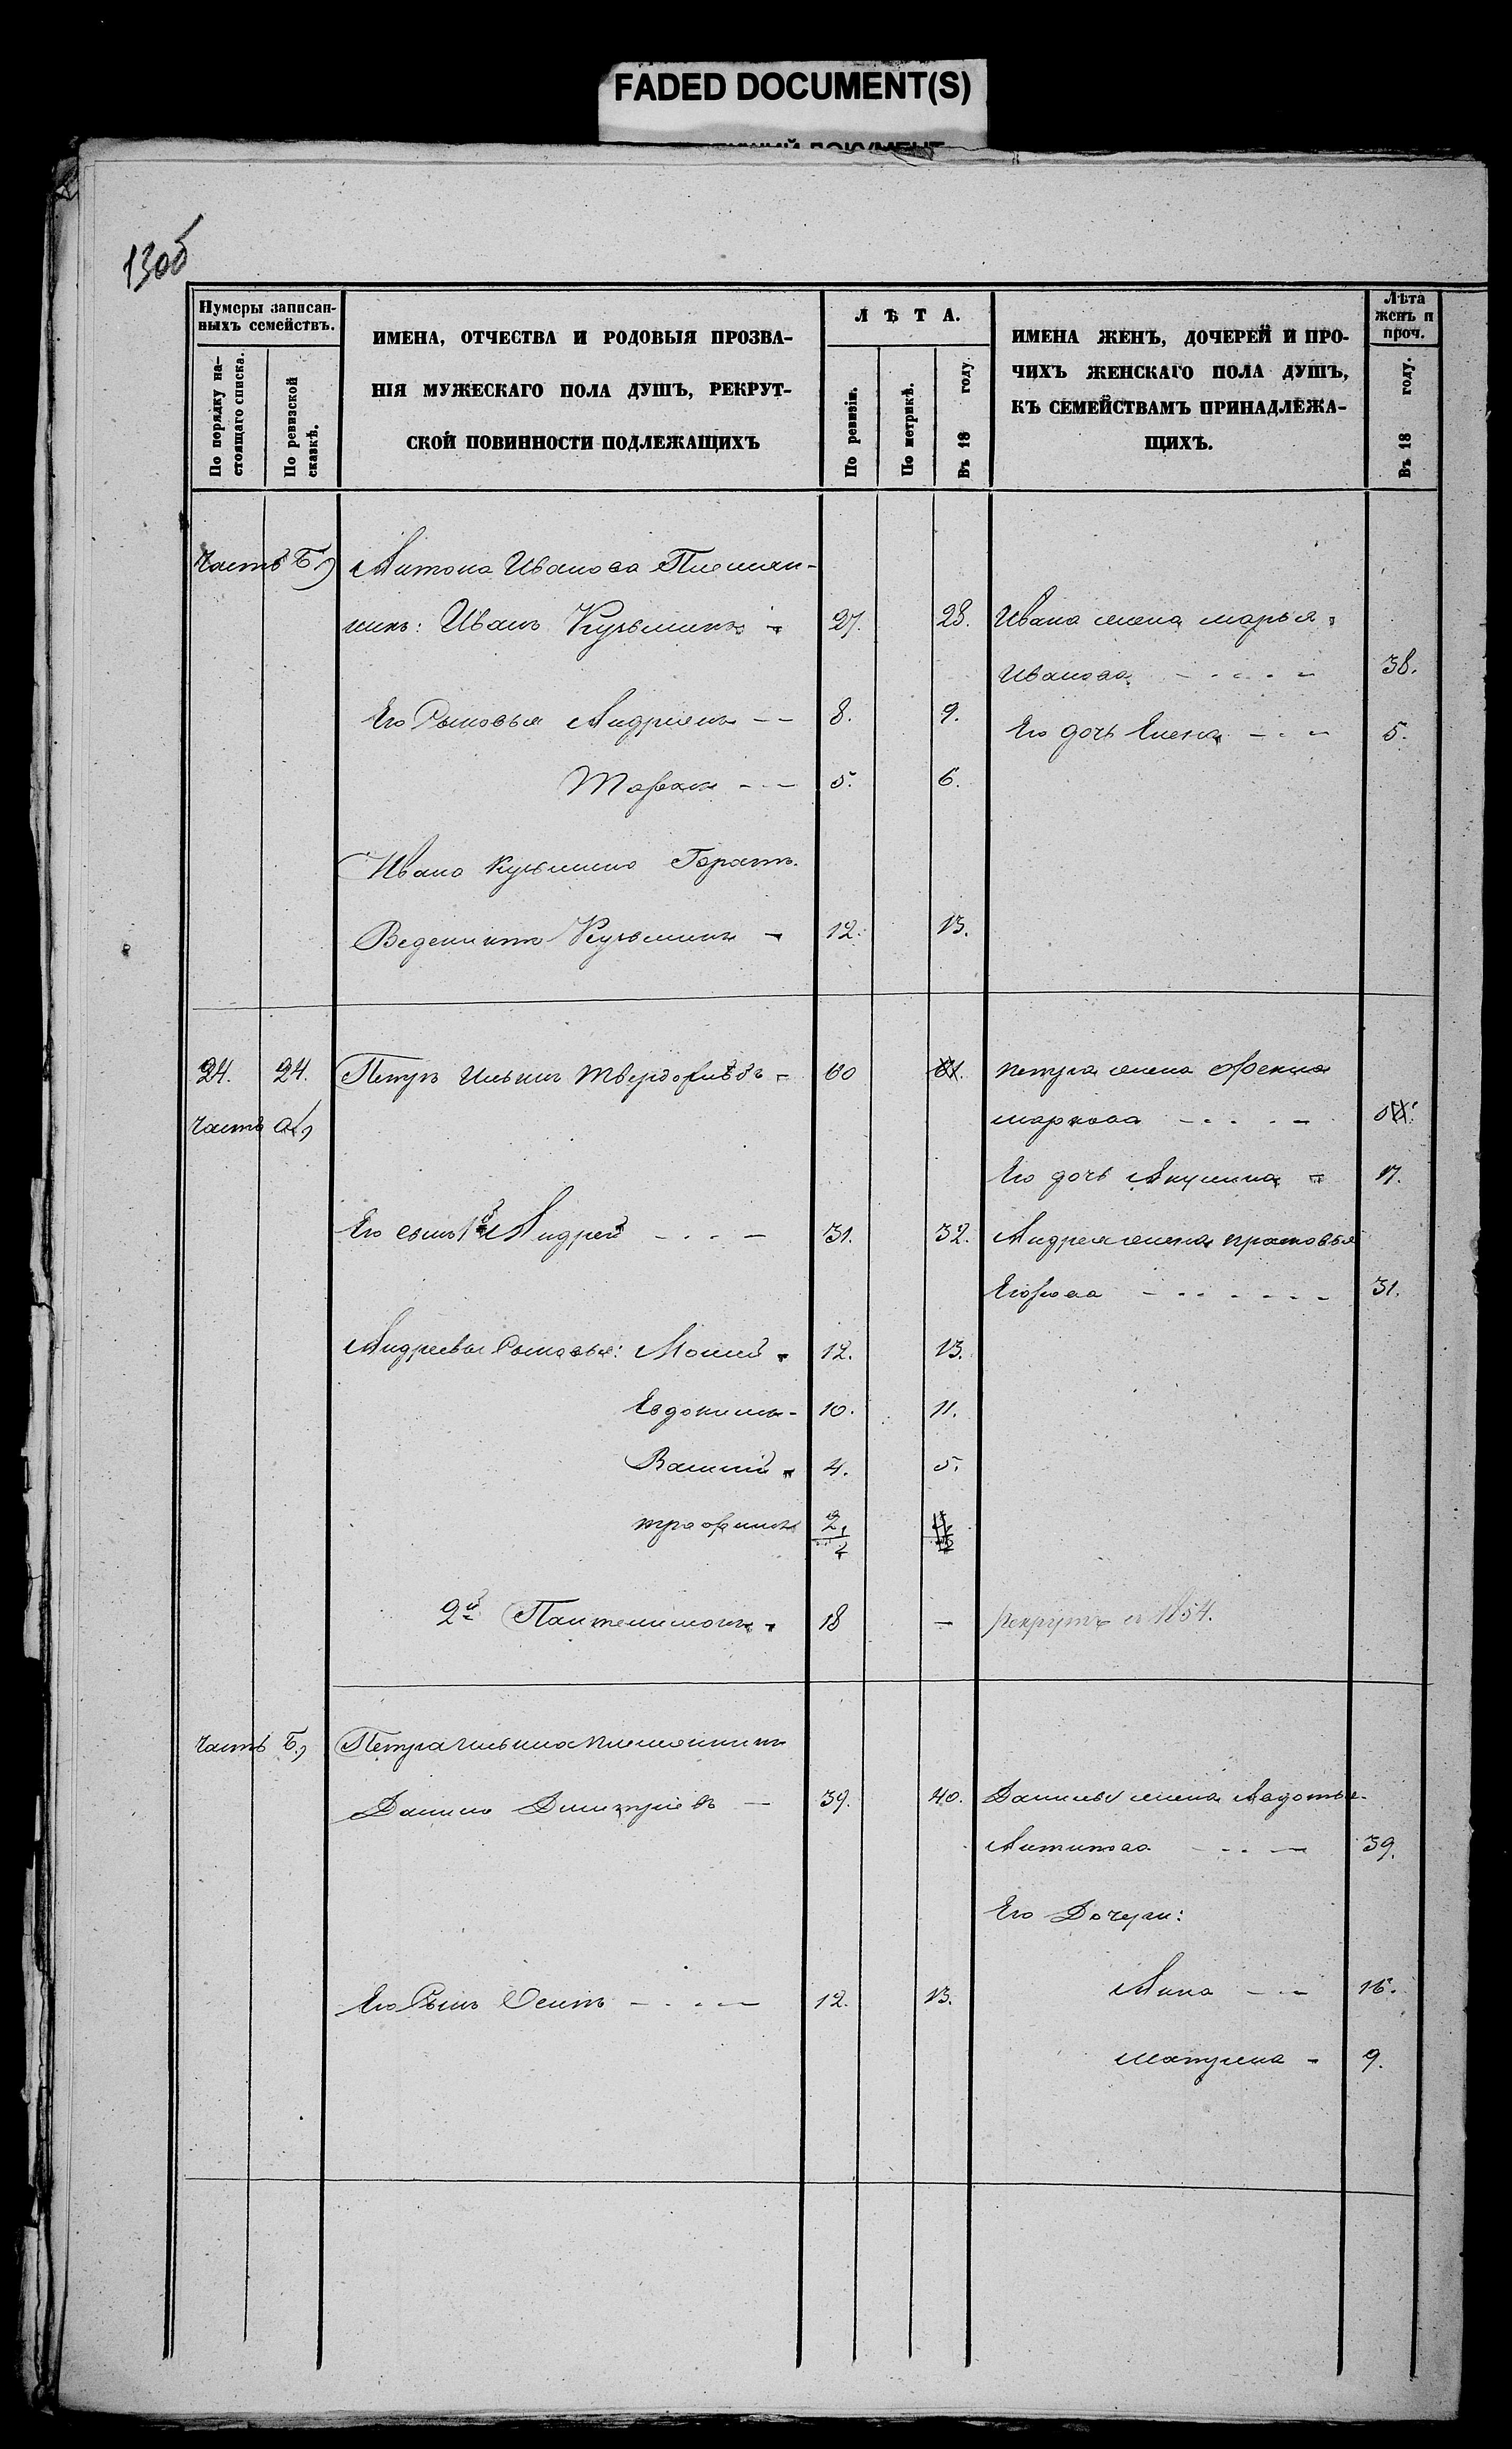 FADED DOCUMENT(S)
130б
Нумеры записан-
ныхъ семействъ.
По порядку на-
стоящаго списка.
По ревизской
сказкѣ.
ИМЕНА, ОТЧЕСТВА И РОДОВЫЯ ПРОЗВА-
НІЯ МУЖЕСКАГО ПОЛА ДУШЪ, РЕКРУТ-
СКОЙ ПОВИННОСТИ ПОДЛЕЖАЩИХЪ
ЛѢТА.
По ревизіи.
По метрикѣ.
Въ 18 году.
ИМЕНА ЖЕНЪ, ДОЧЕРЕЙ И ПРО-
ЧИХЪ ЖЕНСКАГО ПОЛА ДУШЪ,
КЪ СЕМЕЙСТВАМЪ ПРИНАДЛЕЖА-
ЩИХЪ.
Лѣта
женъ и
проч.
Въ 18 году.
Часть Б,) Антона Иванова Племян-
никъ: Иванъ Кузьминъ - 27. 28. Ивана жена марья
Иванова - - - - 38.
Его Сыновья Андриянъ - - 8. 9. Его дочь Елена - - - 5.
Тарасъ - - 5. 6.
Ивана Кузьмина Братъ
Ведениктъ Кузьминъ - 12. 13.
24. 24. Петръ Ильинъ Твердохлѣбъ - 60 петра жена
часть а,) маркова - - - -
Его дочь Акулина - 17.
Его сынъ 1й Андрей - - - 31. 32. Андрея жена прасковья
Егорова - - - - - - 31.
Андреевы Сыновья: Мосей - 12. 13.
Евдокимъ - 10. 11.
Василій - 4. 5.
трофимъ
2й Пантелимонъ - 18 - рекрутъ в 1854.
часть Б,) Петра Ильина племянникъ
Данило Дмитріевъ - 39. 40. Данилы жена Авдотья
Антипова - - - 39.
Его Дочери:
Его Сынъ Осипъ - - - - 12. 13. Анна - - 16.
матрена - 9.